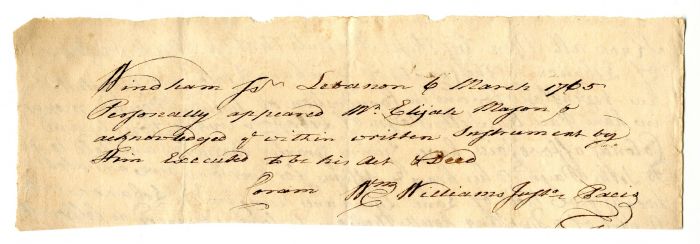 Windham Ss. Lebanon 6 March 1765
Personally appeared Mr. Elijah Mason &
acknowledged ye within written Instrument by
Him Executed to be his Act & Deed
Coram Wm Williams Juste. Pacis